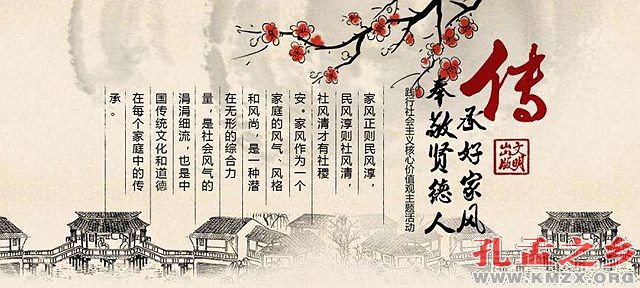 传
承好家风
奉敬贤德人
文明
践行社会主义核心价值观主题活动
家风正则民风淳，
民风淳则社风清，
社风清才有社稷
安·家风作为一个
家庭的风气、风格
和风尚，是一种潜
在无形的综合力
量，是社会风气的
涓涓细流，也是中
国传统文化和道德
在每个家庭中的传
承。
孔孟之乡
WWW.KMZX.ORG